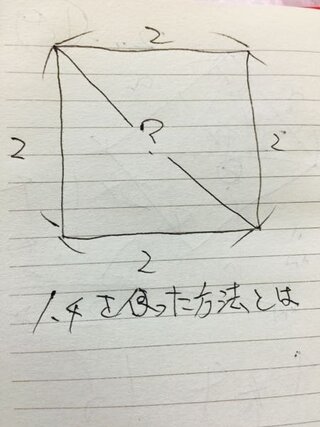 2
2
?
2
2
1.4を使った方法とは